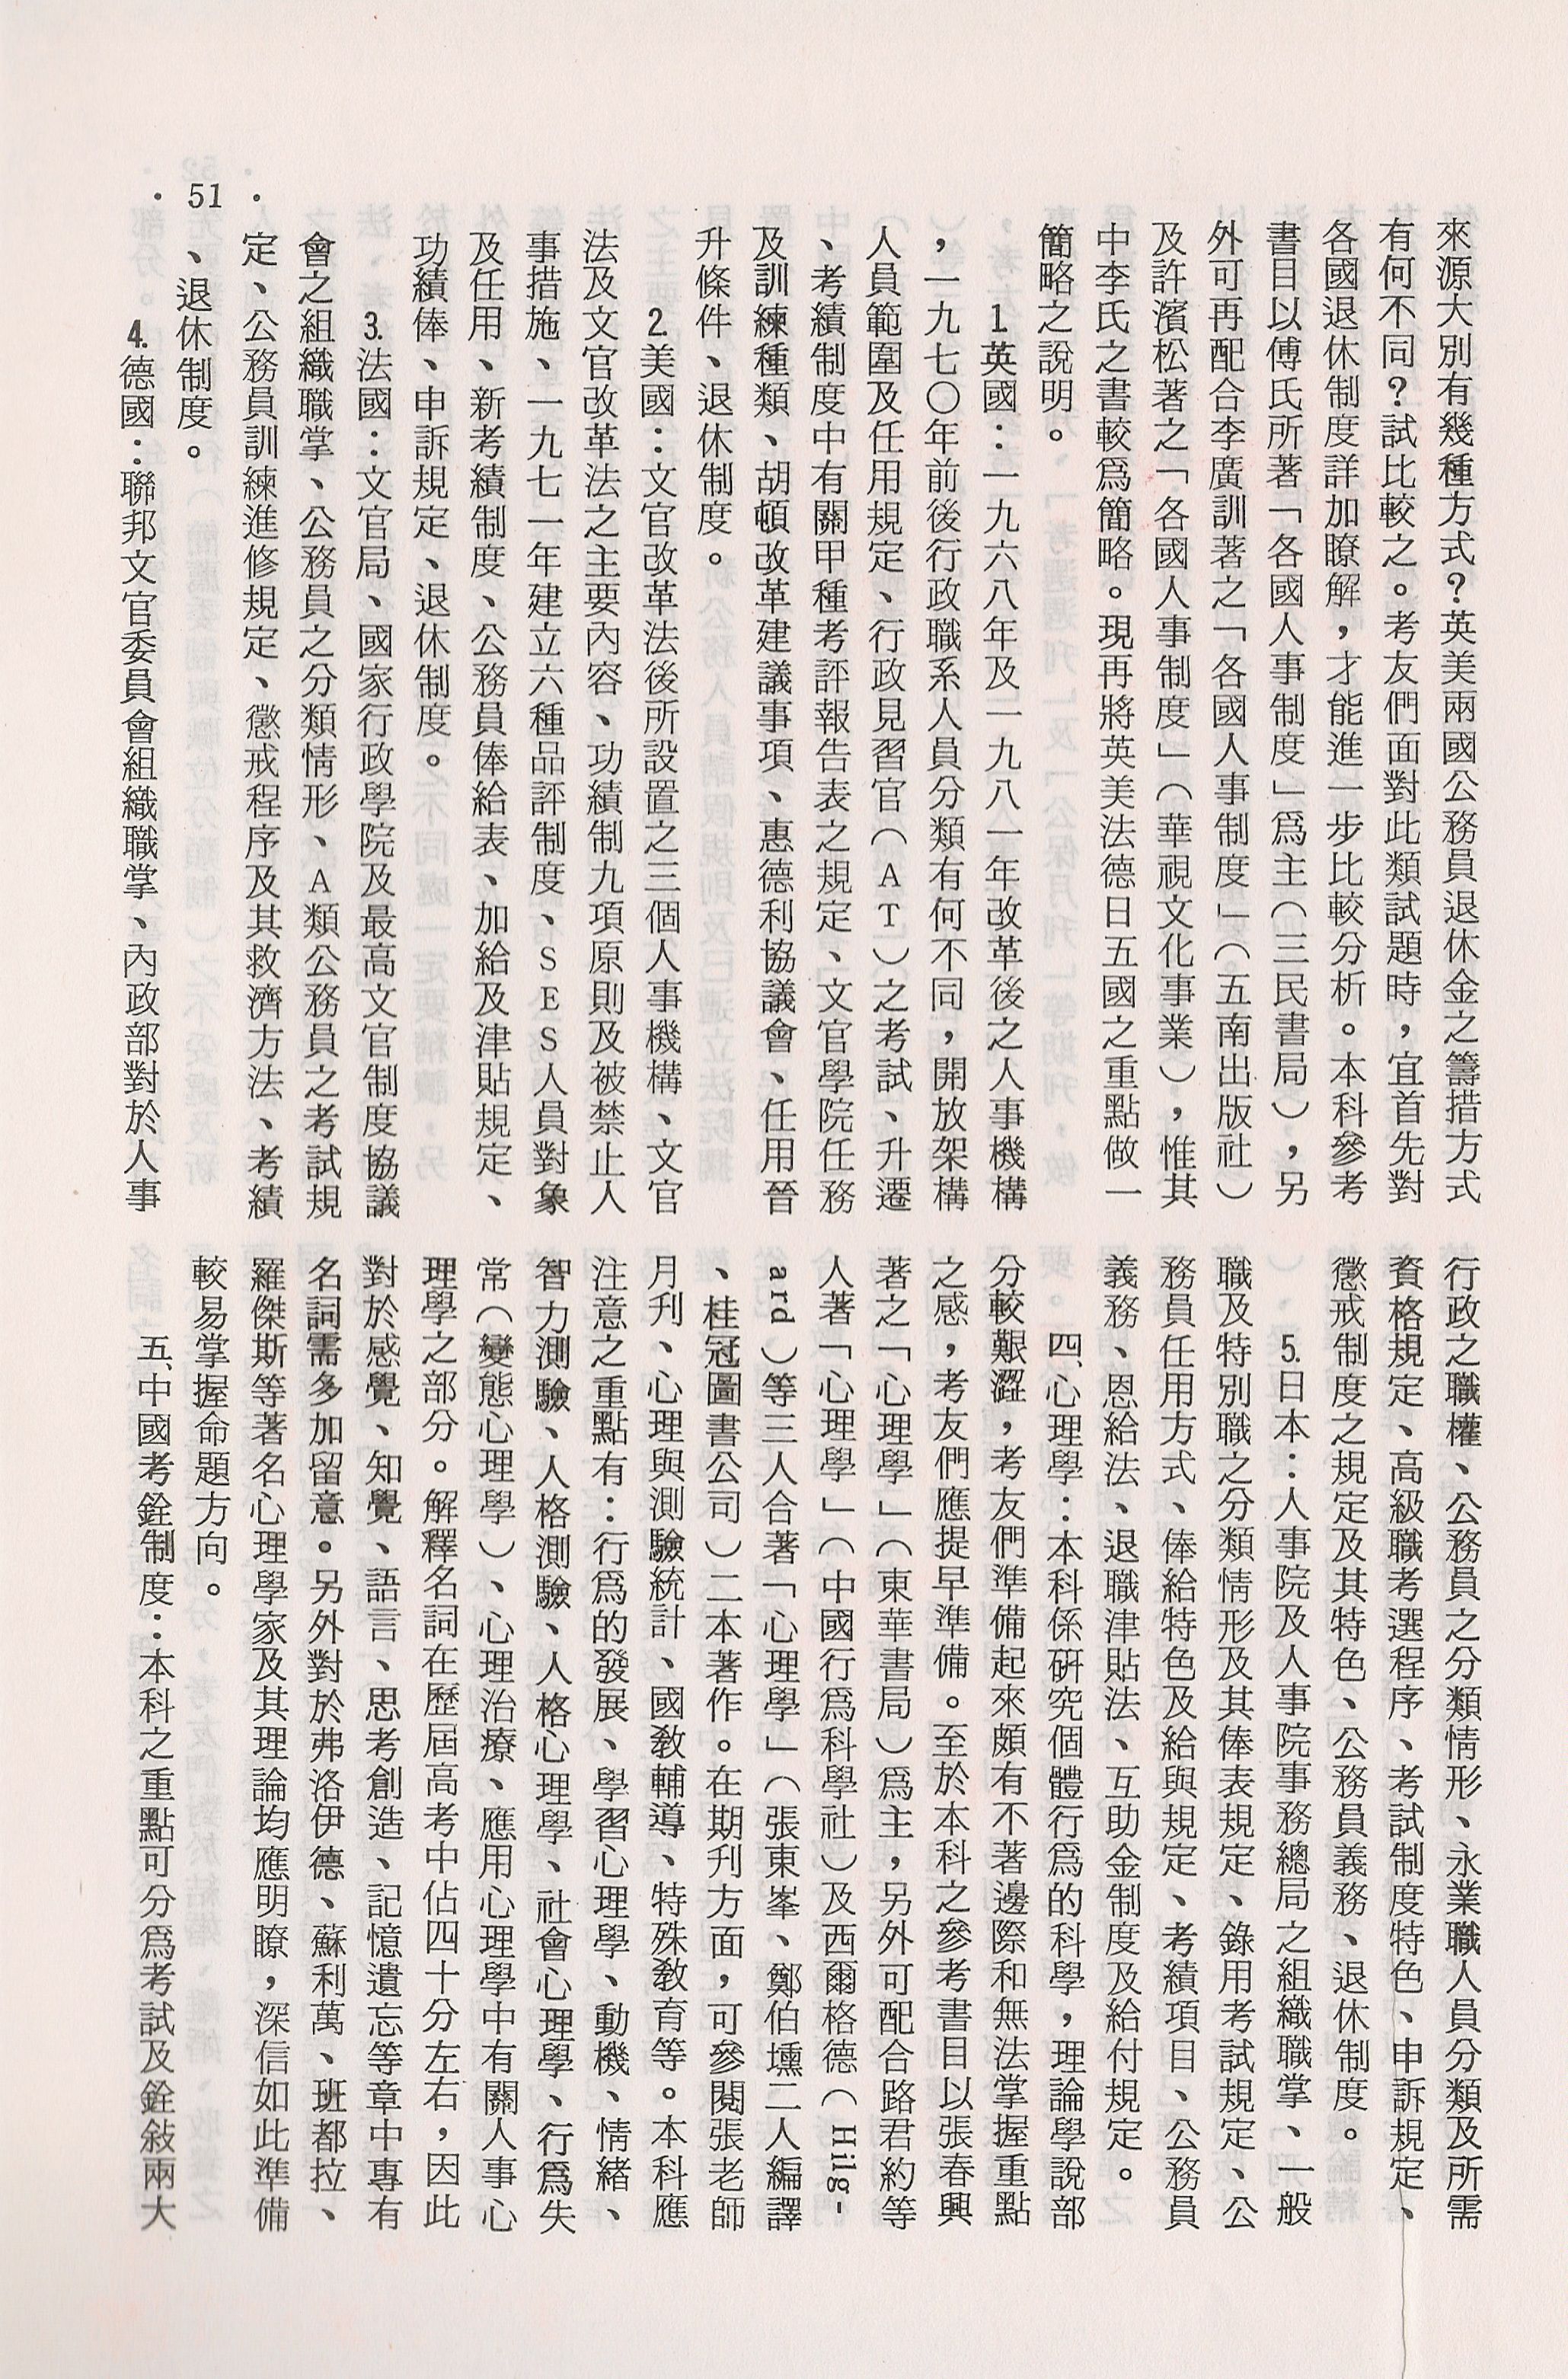 來源大別有幾種方式?英美兩國公務員退休金之籌措方式
有何不同?試比較之。考友們面對此類試題時,宜首先對
各國退休制度詳加瞭解,才能進一步比較分析。本科參考
書目以傅氏所著「各國人事制度」爲主(三民書局),另
外可再配合李廣訓著之「各國人事制度」(五南出版社)
及許濱松著之「各國人事制度」(華視文化事業),惟其
中李氏之書較爲簡略。現再將英美法德日五國之重點做一
簡略之說明。
1.英國:一九六八年及一九八一年改革後之人事機構
,一九七〇年前後行政職系人員分類有何不同,開放架構
人員範圍及任用規定、行政見習官(AT)之考試、升遷
、考績制度中有關甲種考評報告表之規定、文官學院任務
及訓練種類、胡頓改革建議事項、惠德利協議會、任用晉
升條件、退休制度。
2.美國:文官改革法後所設置之三個人事機構、文官
法及文官改革法之主要內容、功績制九項原則及被禁止人
事措施、一九七一年建立六種品評制度、SES人員對象
及任用、新考績制度、公務員俸給表、加給及津貼規定、
功績俸、申訴規定、退休制度。
3.法國:文官局、國家行政學院及最高文官制度協議
會之組織職掌、公務員之分類情形、A類公務員之考試規
定、公務員訓練進修規定、懲戒程序及其救濟方法、考績
、退休制度。
4.德國:聯邦文官委員會組織職掌、內政部對於人事
行政之職權、公務員之分類情形、永業職人員分類及所需
資格規定、高級職考選程序、考試制度特色、申訴規定、
懲戒制度之規定及其特色、公務員義務、退休制度。
5.日本:人事院及人事院事務總局之組織職掌、一般
職及特別職之分類情形及其俸表規定、錄用考試規定、公
務員任用方式、俸給特色及給與規定、考績項目、公務員
義務、恩給法、退職津貼法、互助金制度及給付規定。
四、心理學:本科係研究個體行爲的科學,理論學說部
分較艱澀,考友們準備起來頗有不著邊際和無法掌握重點
之感,考友們應提早準備。至於本科之參考書目以張春興
著之「心理學」(東華書局)爲主,另外可配合路君約等
人著「心理學」(中國行爲科學社)及西爾格德(Hilg-
ard)等三人合著「心理學」(張東峯、鄭伯壎二人編譯
、桂冠圖書公司)二本著作。在期刋方面,可參閱張老師
月刋、心理與測驗統計、國敎輔導、特殊敎育等。本科應
注意之重點有:行爲的發展、學習心理學、動機、情緒、
智力測驗、人格測驗、人格心理學、社會心理學、行爲失
常(變態心理學)、心理治療、應用心理學中有關人事心
理學之部分。解釋名詞在歷屆高考中佔四十分左右,因此
對於感覺、知覺、語言、思考創造、記憶遺忘等章中專有
名詞需多加留意。另外對於弗洛伊德、蘇利萬、班都拉、
羅傑斯等著名心理學家及其理論均應明瞭,深信如此準備
較易掌握命題方向。
五、中國考銓制度:本科之重點可分爲考試及銓敍兩大
• 51 •